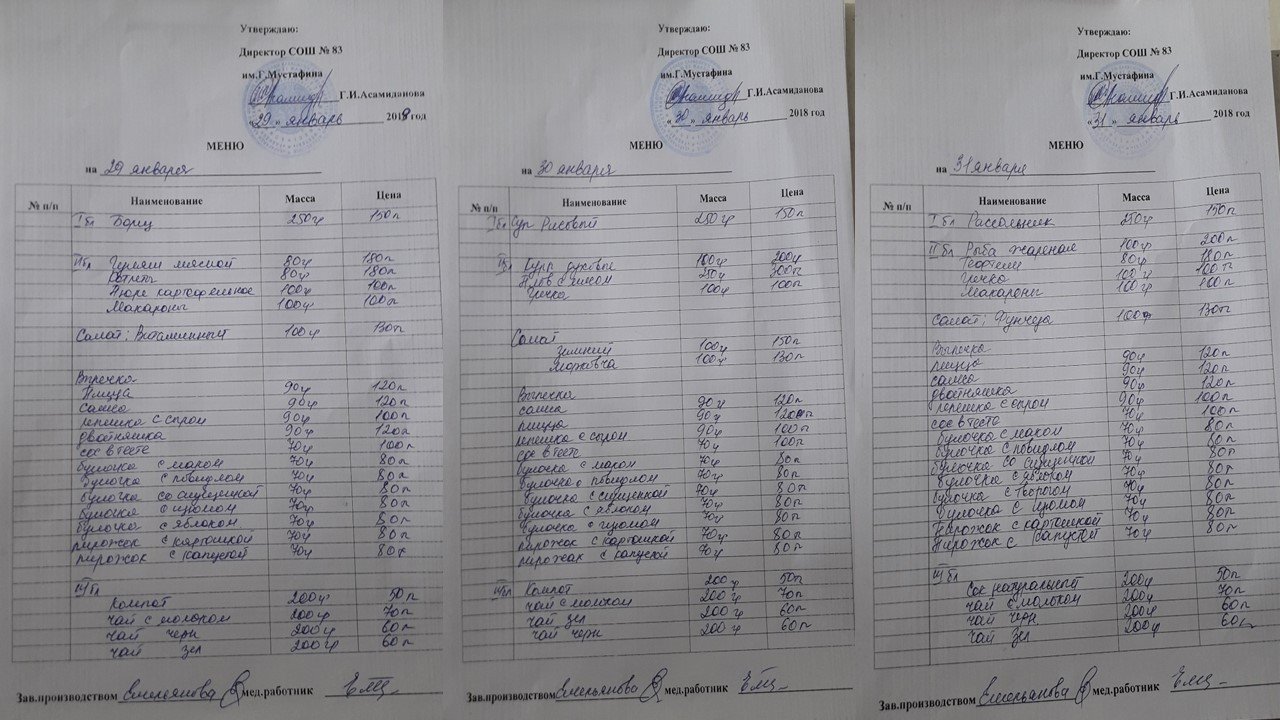 Утверждаю:
Директор СОШ № 83
им.Г.Мустафина
Г.И.Асамиданова
«29» январь 2018 год
МЕНЮ
на 29 января
№ п/п Наименование Масса Цена
I бл Борщ 250гр 150т
II бл Гуляш мясной 80гр 180т
Котлеты 80гр 180т
Пюре картофельное 100гр 100т
Макароны 100гр 100т
Салат: Витаминный 100гр 130т
Выпечка
Пицца 90гр 120т
Самса 90гр 120т
лепешка с сыром 90гр 100т
двойняшка 90гр 120т
сос в тесте 70гр 100т
булочка с маком 70гр 80т
булочка с повидлом 70гр 80т
булочка со сгущенкой 70гр 80т
булочка с изюмом 70гр 80т
булочка с яблоком 70гр 80т
пирожок с картошкой 70гр 80т
пирожок с капустой 70гр 80т
III бл
Компот 200гр 50т
чай с молоком 200гр 70т
чай черн 200гр 60т
чай зел 200гр 60т
Зав.производством Емельянова мед.работник
Утверждаю:
Директор СОШ № 83
им.Г.Мустафина
Г.И.Асамиданова
«30» январь 2018 год
МЕНЮ
на 30 января
№ п/п Наименование Масса Цена
I бл Суп Рисовый 250гр 150т
II бл Куры духовые 100гр 200т
Плов с мясом 250гр 300т
Гречка 100гр 100т
Салат
Зимний 100гр 150т
Морковча 100гр 130т
Выпечка
самса 90гр 120т
пицца 90гр 120т
лепешка с сыром 90гр 100т
сос в тесте 70гр 100т
булочка с маком 70гр 80т
булочка с повидлом 70гр 80т
булочка с сгущенкой 70гр 80т
булочка с яблоком 70гр 80т
булочка с изюмом 70гр 80т
пирожок с картошкой 70гр 80т
пирожок с капустой 70гр 80т
III бл Компот 200гр 50т
чай с молоком 200гр 70т
чай зел 200гр 60т
чай черн 200гр 60т
Зав.производством Емельянова мед.работник
Утверждаю:
Директор СОШ № 83
им.Г.Мустафина
Г.И.Асамиданова
«31» январь 2018 год
МЕНЮ
на 31 января
№ п/п Наименование Масса Цена
I бл Рассольник 250гр 150т
II бл Рыба жареная 100гр 200т
Тефтели 80гр 180т
Гречка 100гр 100т
Макароны 100гр 100т
Салат: Фунчеза 100гр 130т
Выпечка
пицца 90гр 120т
самса 90гр 120т
двойняшка 90гр 120т
лепешка с сыром 90гр 100т
сос в тесте 70гр 100т
булочка с маком 70гр 80т
булочка с повидлом 70гр 80т
булочка со сгущенкой 70гр 80т
булочка с яблоком 70гр 80т
булочка с творогом 70гр 80т
булочка с изюмом 70гр 80т
Пирожок с картошкой 70гр 80т
Пирожок с капустой 70гр 80т
III бл
Сок натуральный 200гр 50т
чай с молоком 200гр 70т
чай черн 200гр 60т
чай зел 200гр 60т
Зав.производством Емельянова мед.работник